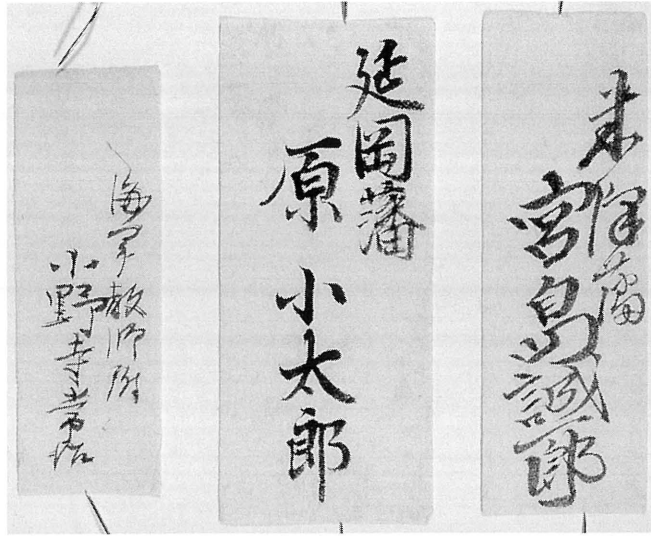 米澤藩
宮島誠一郎
延岡藩
原 小太郎
海軍教師附
小野寺常治